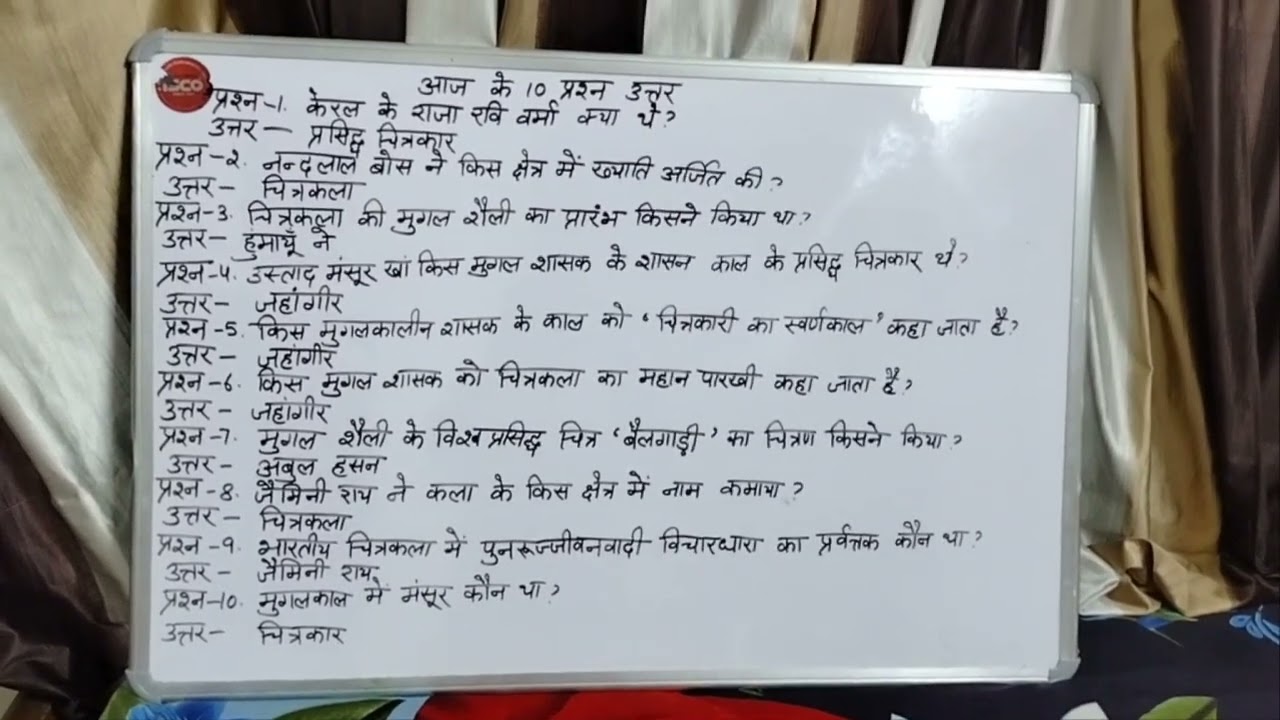 आज के 10 प्रश्न उत्तर
प्रश्न-1. केरल के राजा रवि वर्मा क्या थे?
उत्तर — प्रसिद्ध चित्रकार
प्रश्न-2. नन्दलाल बोस ने किस क्षेत्र में ख्याति अर्जित की?
उत्तर- चित्रकला
प्रश्न-3. चित्रकला की मुगल शैली का प्रारंभ किसने किया था?
उत्तर- हुमायूँ ने
प्रश्न-4. उस्ताद मंसूर खां किस मुगल शासक के शासन काल के प्रसिद्ध चित्रकार थे?
उत्तर- जहांगीर
प्रश्न-5. किस मुगलकालीन शासक के काल को 'चित्रकारी का स्वर्णकाल' कहा जाता है?
उत्तर- जहांगीर
प्रश्न-6. किस मुगल शासक को चित्रकला का महान पारखी कहा जाता है?
उत्तर- जहांगीर
प्रश्न-7. मुगल शैली के विश्व प्रसिद्ध चित्र 'बैलगाड़ी' का चित्रण किसने किया?
उत्तर- अबुल हसन
प्रश्न-8. जैमिनी राय ने कला के किस क्षेत्र में नाम कमाया?
उत्तर- चित्रकला
प्रश्न-9. भारतीय चित्रकला में पुनरूज्जीवनवादी विचारधारा का प्रर्वत्तक कौन था?
उत्तर- जैमिनी राय
प्रश्न-10. मुगलकाल में मंसूर कौन था?
उत्तर- चित्रकार